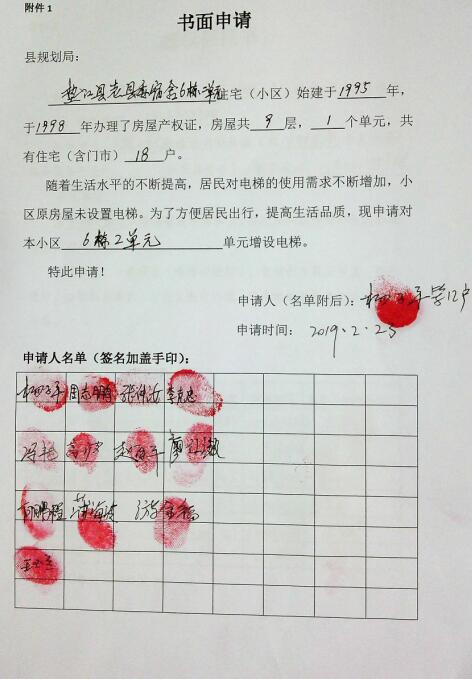 附件1
书面申请
县规划局：
垫江县老县委宿舍6栋 住宅（小区）始建于1995年，
于1998年办理了房屋产权证，房屋共9层，1个单元，共
有住宅（含门市）18户。
随着生活水平的不断提高，居民对电梯的使用需求不断增加，小
区原房屋未设置电梯。为了方便居民出行，提高生活品质，现申请对
本小区6栋2单元单元增设电梯。
特此申请！
申请人（名单附后）：等12户
申请时间：2019.2.25
申请人名单（签名加盖手印）：
周志鹏 李克忠